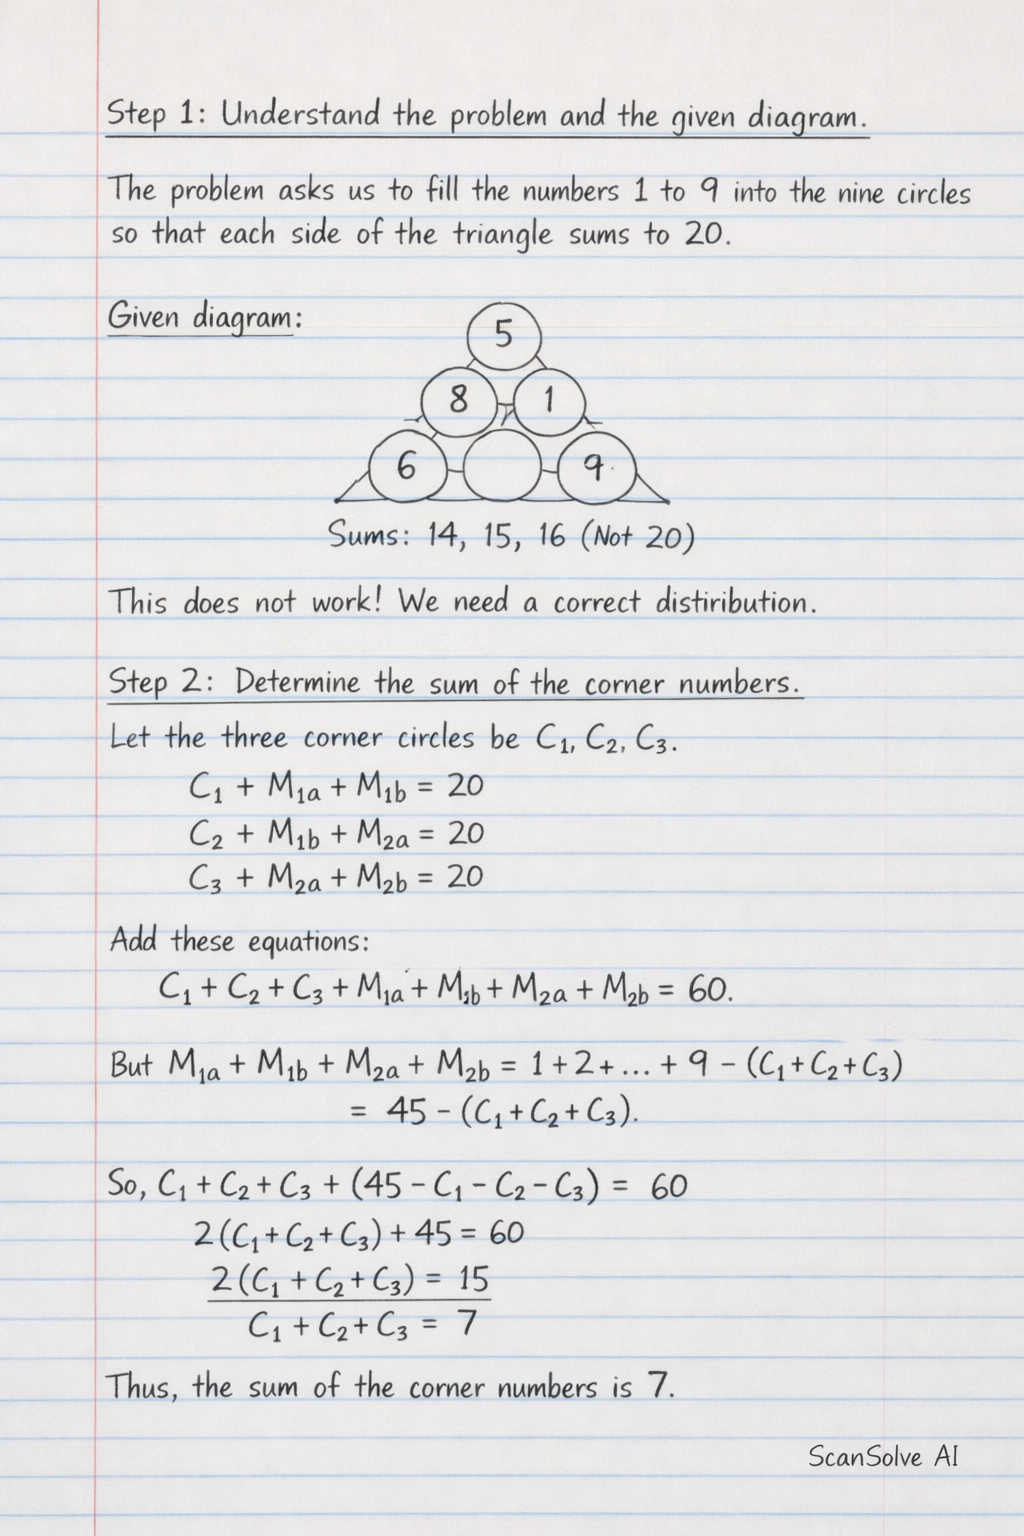 Step 1: Understand the problem and the given diagram.
The problem asks us to fill the numbers 1 to 9 into the nine circles
so that each side of the triangle sums to 20.
Given diagram:
5
8 1
6 9
Sums: 14, 15, 16 (Not 20)
This does not work! We need a correct distiribution.
Step 2: Determine the sum of the corner numbers.
Let the three corner circles be C₁, C₂, C₃.
C₁ + M₁ₐ + M₁b = 20
C₂ + M₁b + M₂ₐ = 20
C₃ + M₂ₐ + M₂b = 20
Add these equations:
C₁ + C₂ + C₃ + M₁ₐ + M₁b + M₂ₐ + M₂b = 60.
But M₁ₐ + M₁b + M₂ₐ + M₂b = 1 + 2 + ... + 9 − (C₁+C₂+C₃)
= 45 − (C₁+C₂+C₃).
So, C₁ + C₂ + C₃ + (45 − C₁ − C₂ − C₃) = 60
2(C₁+C₂+C₃) + 45 = 60
2(C₁ + C₂ + C₃) = 15
C₁ + C₂ + C₃ = 7
Thus, the sum of the corner numbers is 7.
ScanSolve AI